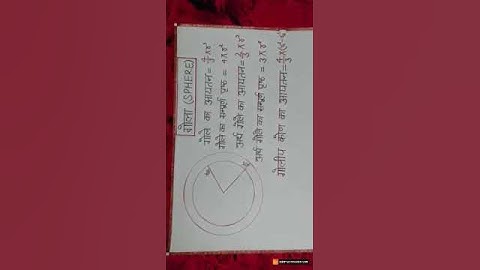 गोला (SPHERE)
गोले का आयतन = 4/3 πr³
गोले का सम्पूर्ण पृष्ठ = 4πr²
अर्ध गोले का आयतन = 2/3 πr³
अर्ध गोले का सम्पूर्ण पृष्ठ = 3πr²
गोलीय कोण का आयतन =